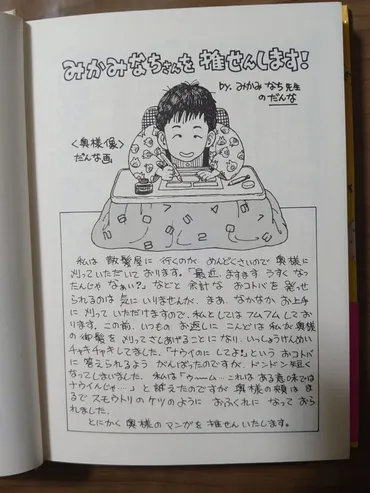 みかみなちさんを推せんします!
by.みかみなち先生
のだんな
〈奥様像〉
だんな画
私は散髪屋に行くのがめんどくさいので奥様に
刈っていただいております。「最近、ますますうすくなっ
たんじゃなぁい?」などと余計なおコトバを発せ
られるのは気にいりませんが、まあ、なかなかお上手
に刈っていただけますので、私としてはフムフムしてお
ります。この前、いつものお返しにこんどは私が奥様
の御髪を刈ってさしあげることになり、いっしょうけんめい
チャキチャキしてました。「ナウイのにしてよ!」というおコトバ
に答えられるようがんばったのですが、ドンドン短く
なってしまいました。私は「ウ〜〜ム…これはある意味では
ナウイんじゃ…」と訴えたのですが奥様の頬はま
るでスモウトリのケツのようにおふくれになっておら
れました。
とにかく奥様のマンガを推せんいたします。